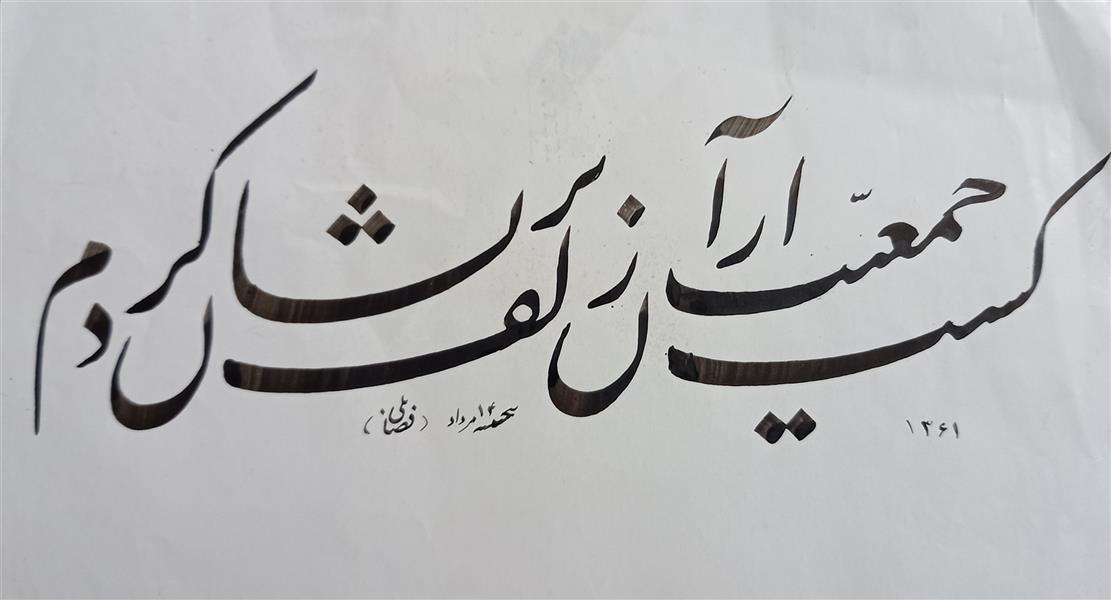 کسب جمعیّت از آن زلف پریشان کردم
۱۳۶۱
پنجشنبه ۱۴ مرداد (فضائلی)